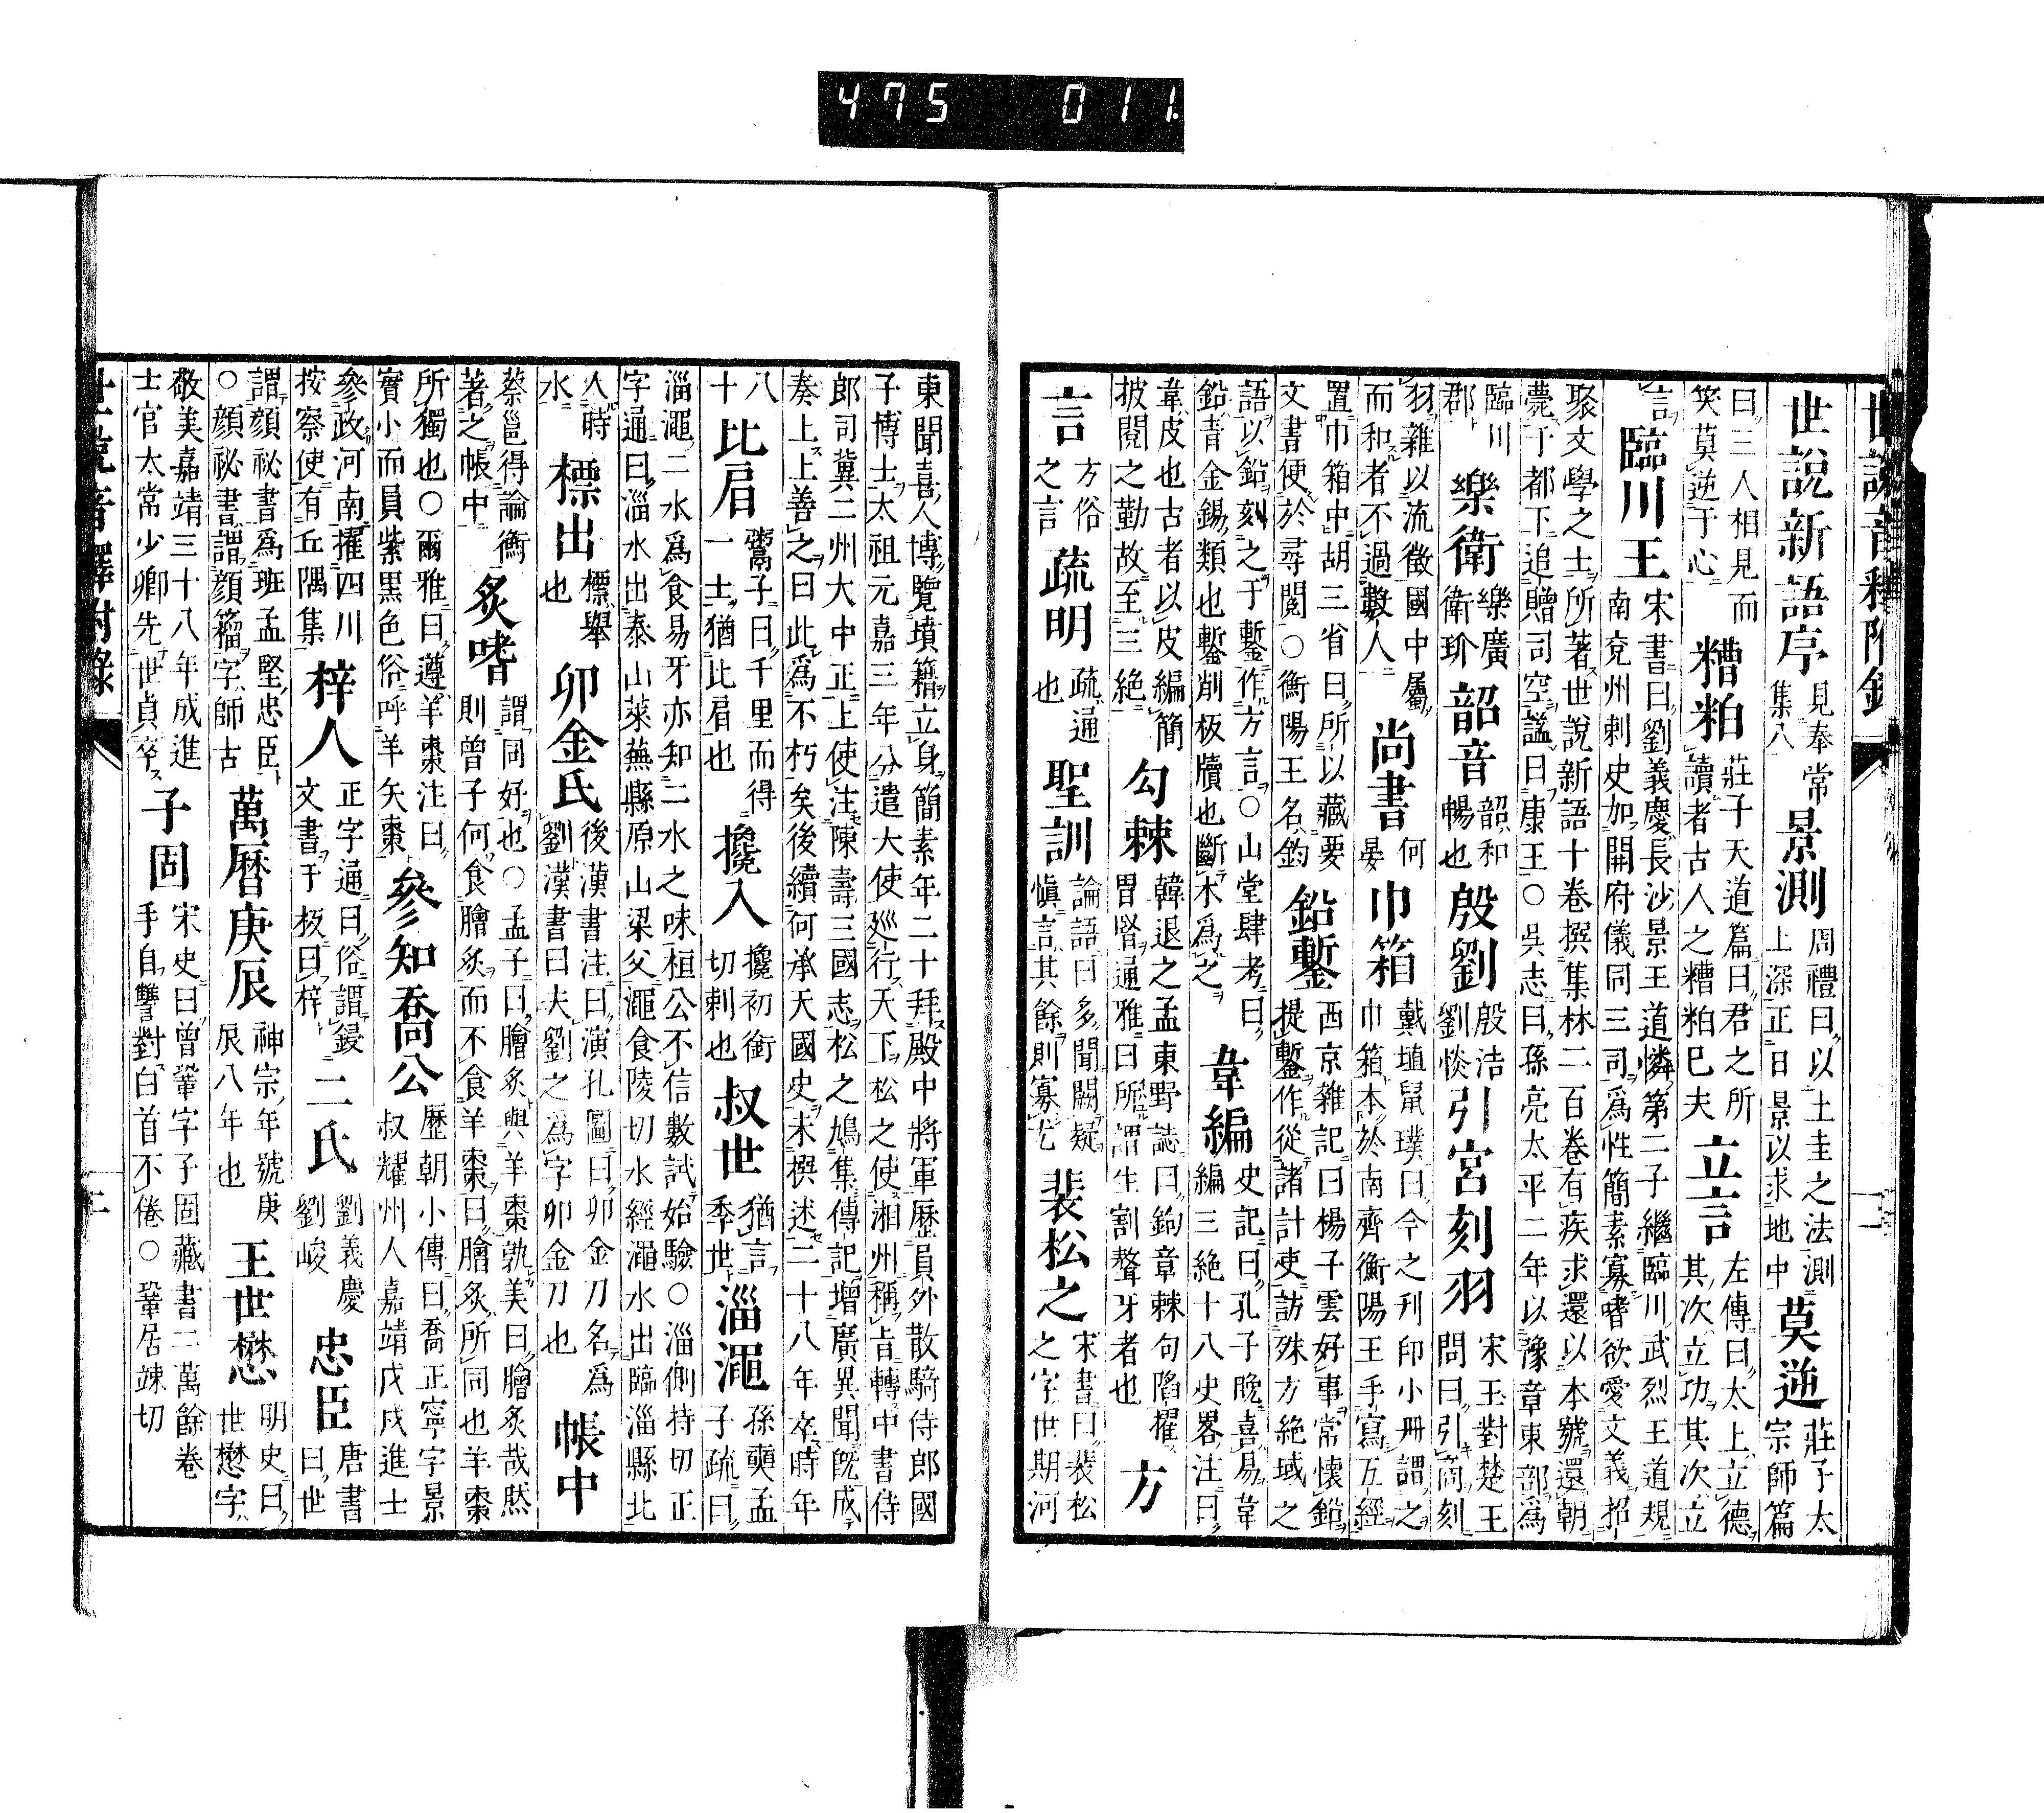 475 011.
世說音釋附錄 一
世說新語序 見奉常集八 景測 周禮曰以土圭之法測上深正日景以求地中 莫逆 莊子太宗師篇
曰三人相見而笑莫逆于心 糟粕 莊子天道篇曰君之所讀者古人之糟粕已夫 立言 左傳曰太上立德其次立功其次立
言 臨川王 宋書曰劉義慶長沙景王道憐第二子繼臨川武烈王道規南兗州刺史加開府儀同三司爲性簡素寡嗜欲愛文義招
聚文學之士所著世說新語十卷撰集林二百卷有疾求還以本號還朝薨于都下追贈司空謚曰康王○吳志曰孫亮太平二年以豫章東部爲
臨川郡 樂衛 樂廣衛玠 韶音 韶和暢也 殷劉 殷浩劉惔 引宮刻羽 宋玉對楚王問曰引商刻
羽雜以流徵國中屬而和者不過數人 尚書 何晏 巾箱 戴埴鼠璞曰今之刊印小冊謂之巾箱本於南齊衡陽王手寫五經
置巾箱中胡三省曰所以藏要文書便於尋閱○衡陽王名鈞 鉛鏨 西京雜記曰楊子雲好事常懷鉛提鏨作從諸計吏訪殊方絕域之
語以鉛刻之于鏨作方言○山堂肆考曰鉛青金錫類也鏨削板牘也斷木爲之 韋編 史記曰孔子晚喜易韋編三絕十八史畧注曰
韋皮也古者以皮編簡披閱之勤故至三絕 勾棘 韓退之孟東野誌曰鉤章棘句陷擢胃腎通雅曰所謂生割聱牙者也 方
言 方俗之言 疏明 疏通也 聖訓 論語曰多聞闕疑愼言其餘則寡尤 裴松之 宋書曰裴松之字世期河
東聞喜人博覽墳籍立身簡素年二十拜殿中將軍歷員外散騎侍郎國子博士太祖元嘉三年分遣大使廵行天下松之使湘州稱旨轉中書侍
郎司冀二州大中正上使注陳壽三國志松之鳩集傳記增廣異聞旣成奏上上善之曰此爲不朽矣後續何承天國史未撰述二十八年卒時年
八十 比肩 鬻子曰千里而得一士猶比肩也 攙入 攙初銜切刺也 叔世 猶言季世 淄澠 孫奭孟子疏曰
淄澠二水爲食易牙亦知二水之味桓公不信數試始驗○淄側持切正字通曰淄水出泰山萊蕪縣原山梁父澠食陵切水經澠水出臨淄縣北
入時水 標出 標舉也 卯金氏 後漢書注曰演孔圖曰卯金刀名爲劉漢書曰夫劉之爲字卯金刀也 帳中
蔡邕得論衡著之帳中 炙嗜 謂同好也○孟子曰膾炙與羊棗孰美曰膾炙哉然則曾子何食膾炙而不食羊棗曰膾炙所同也羊棗
所獨也○爾雅曰遵羊棗注曰實小而員紫黑色俗呼羊矢棗 參知喬公 歷朝小傳曰喬正寧字景叔耀州人嘉靖戊戌進士
參政河南擢四川按察使有丘隅集 梓人 正字通曰俗謂鋟文書于板曰梓 二氏 劉義慶劉峻 忠臣 唐書曰世
謂顏祕書爲班孟堅忠臣○顏祕書謂顏籀字師古 萬曆庚辰 神宗年號庚辰八年也 王世懋 明史曰世懋字
敬美嘉靖三十八年成進士官太常少卿先世貞卒 子固 宋史曰曾鞏字子固藏書二萬餘卷手自讐對白首不倦○鞏居竦切
世說音釋附錄 二